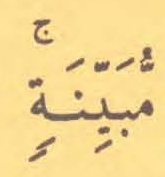 مُّبَيِّنَةٍ ۚ